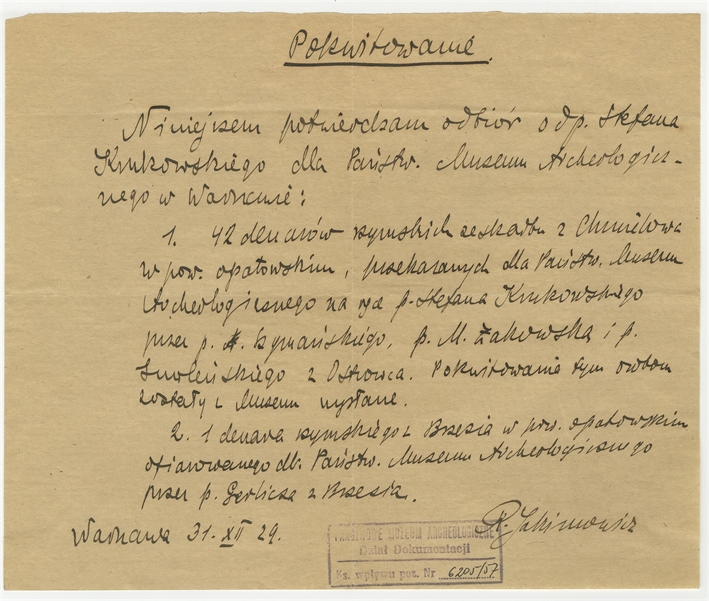 Pokwitowanie.
Niniejszem potwierdzam odbiór od p. Stefana
Krukowskiego dla Państw. Museum Archeologicz-
nego w Warszawie:
1. 42 denarów rzymskich ze skarbu z Chmielowa
w pow. opatowskim, przekazanych dla Państw. Museum
Archeologicznego na ręce p. Stefana Krukowskiego
przez p. Szymańskiego, p. M. Żakowską i p.
Smoleńskiego z Ostrowca. Pokwitowania tym osobom
zostały z Museum wysłane.
2. 1 denara rzymskiego z Brzezia w pow. opatowskim
ofiarowanego dla Państw. Museum Archeologicznego
przez p. Gerlicza z Brzezia.
Warszawa 31. XII 29.
R. Jakimowicz
PAŃSTWOWE MUZEUM ARCHEOLOGICZNE
Dział Dokumentacji
Ks. wpływu poz. Nr 6205/57